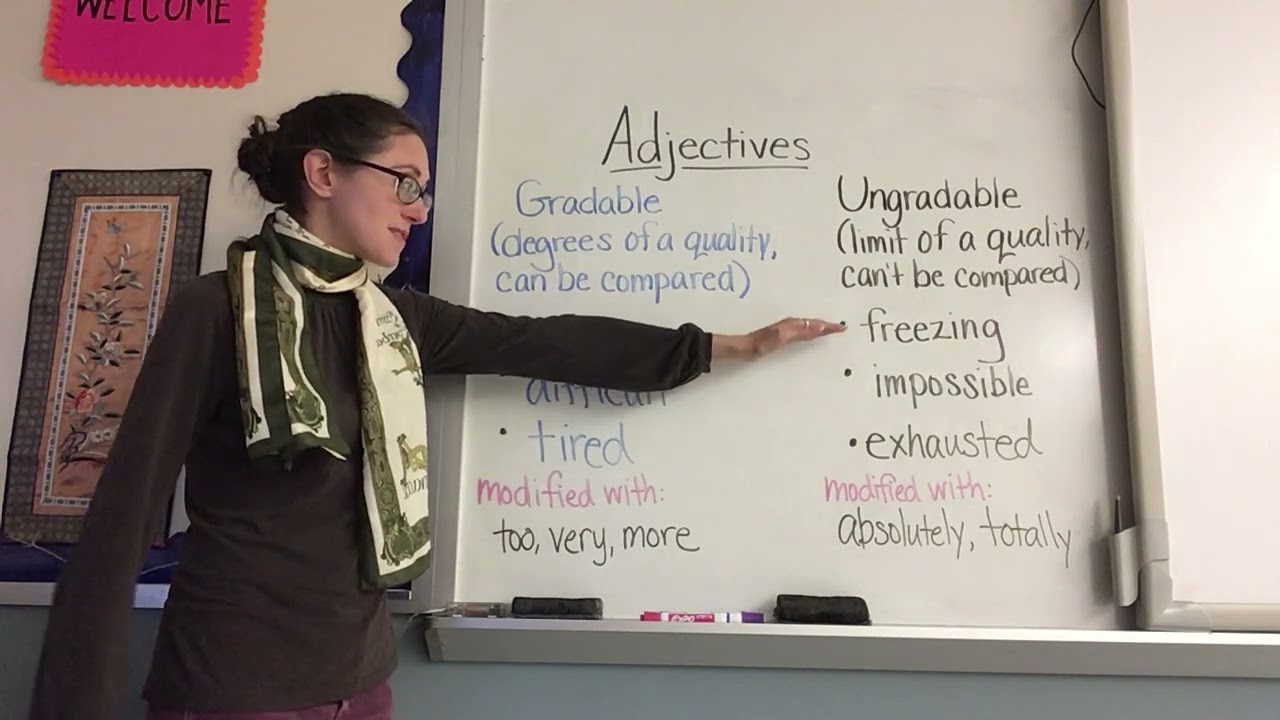 WELCOME
Adjectives
Gradable
(degrees of a quality,
can be compared)
difficult
• tired
modified with:
too, very, more
Ungradable
(limit of a quality,
can't be compared)
• freezing
• impossible
• exhausted
modified with:
absolutely, totally
EXPO